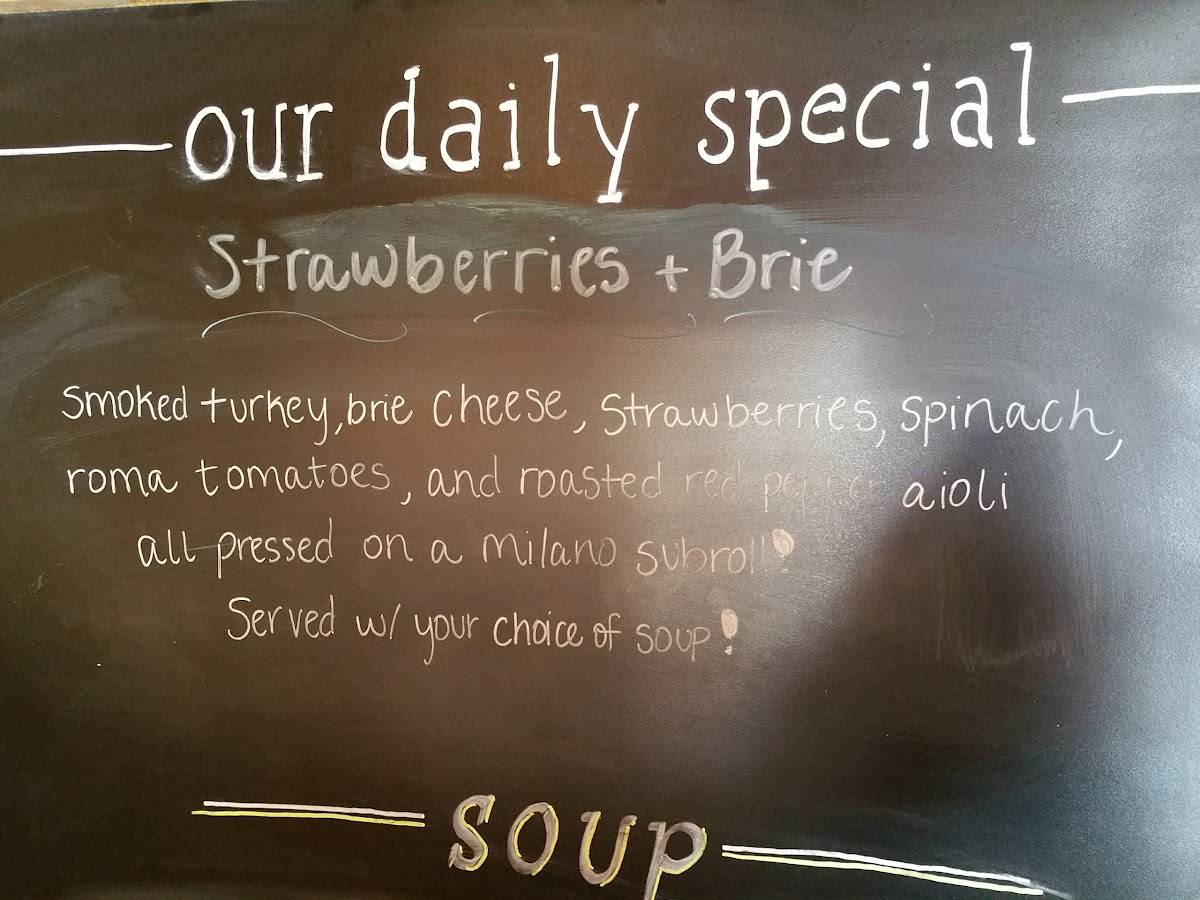 our daily special
Strawberries + Brie
Smoked turkey, brie cheese, Strawberries, spinach,
roma tomatoes, and roasted red pepper aioli
all pressed on a milano subroll!
Served w/ your choice of soup!
soup